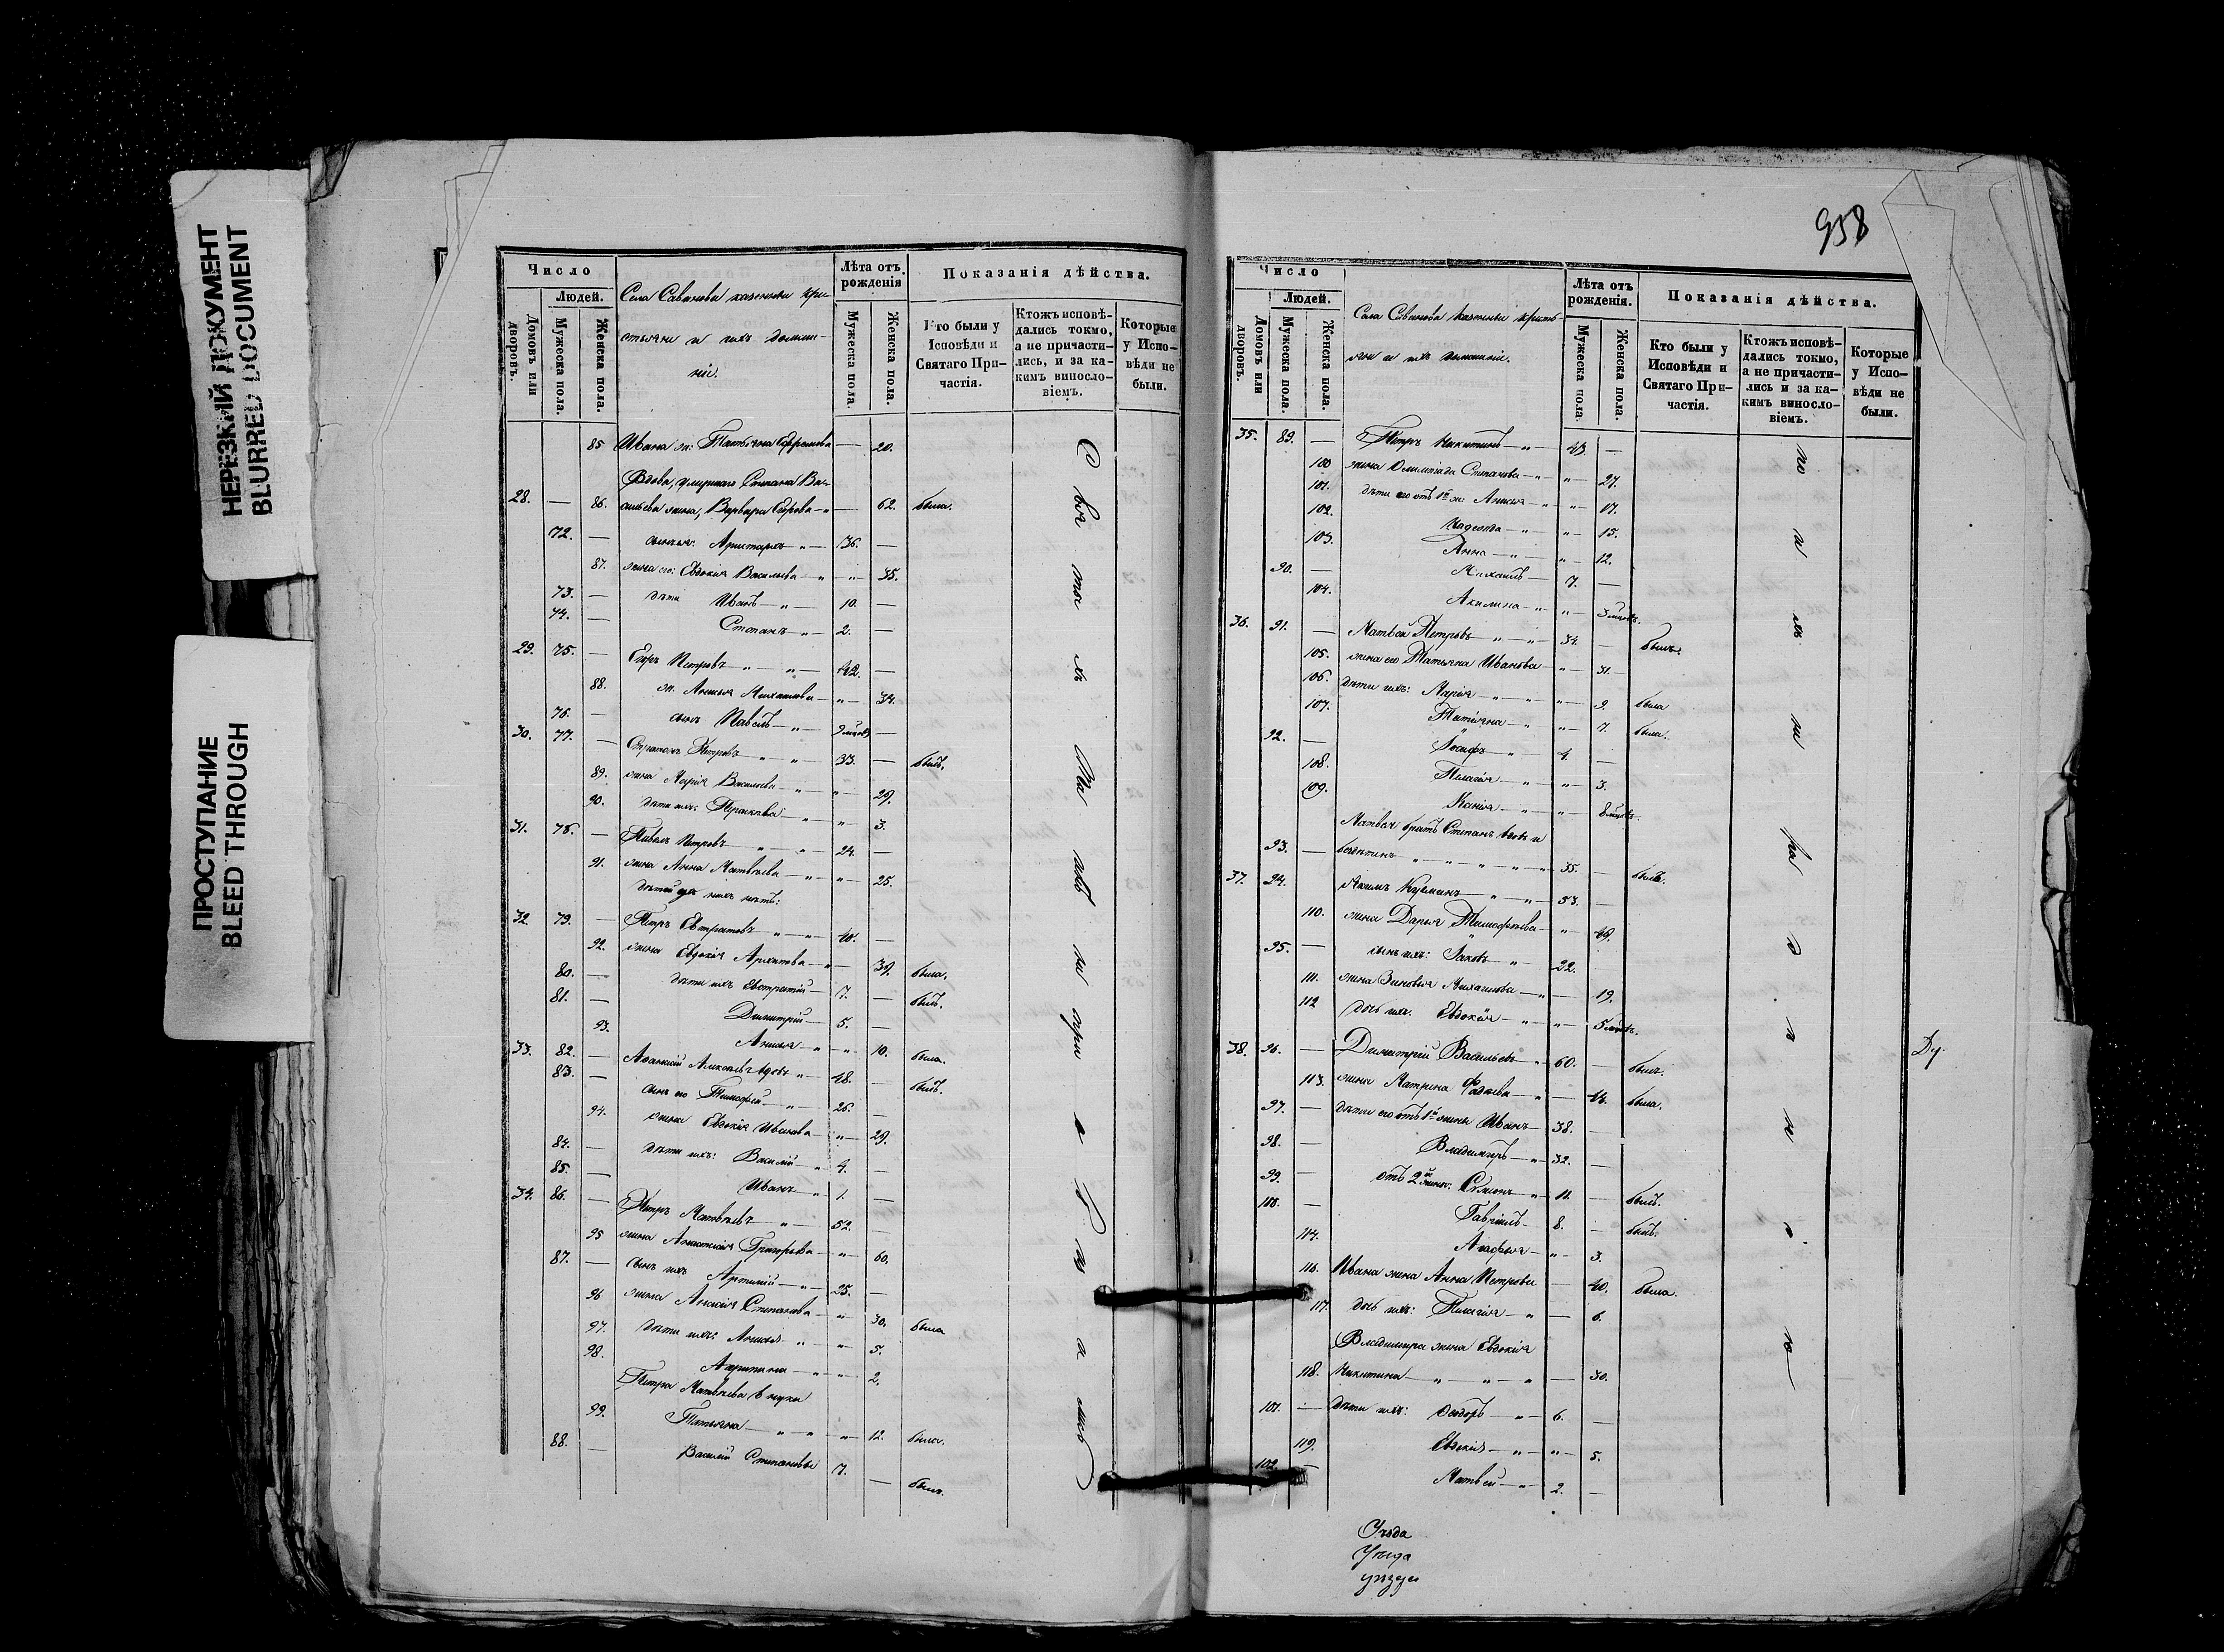 НЕРЕЗКИЙ ДОКУМЕНТ
BLURRED DOCUMENT
ПРОСТУПАНИЕ
BLEED THROUGH
Число
Людей.
Домовъ или дворовъ.
Мужеска пола.
Женска пола.
Села казенные кре-
стьяне и ихъ домаш-
ніе.
Лѣта отъ рожденія
Мужеска пола.
Женска пола.
Показанія дѣйства.
Кто были у Исповѣди и Святаго При-частія.
Ктожъ исповѣ-дались токмо, а не причасти-лись, и за ка-кимъ виносло-віемъ.
Которые у Испо-вѣди не были.
85 Ивана ж: Татьяна Ефремова — 20.
Вдова, умершаго Степана Ва-
28. — 86. сильева жена, Варвара — " — 62. была.
72. — Аристархъ — " — 36. —
87. жена его: Евдокія Васильева — " — " — 35.
73. — дѣти Иванъ — " — 10. —
74. — Степанъ — " — 2. —
29. 75. — Егоръ Петровъ " — " — 42. —
88. ж. Анисья Михайлова — " — 34.
76. — сынъ Павелъ — " — 9 —
30. 77. — Петровъ " — " — 33. — былъ.
89. жена Марія Васильева — " — " — 29.
90. дѣти ихъ: Параскева — " — " — 3.
31. 78. — Павелъ Петровъ " — " — 24. —
91. жена Анна Матвѣева — " — " — 25.
дѣтей у нихъ нѣтъ:
32 79. — Петръ Евстратовъ " — " — 40. —
92. жена Евдокія Архипова — " — 39. была.
80. — дѣти ихъ Евстратій — 7. — былъ.
81. — Димитрій — 5. —
93. Анисья — " — " — 10. была.
33. 82. — Афанасій вдовъ " — 48. — былъ.
83. — сынъ его Тимофей — " — 26. —
94. жена Евдокія Иванова — " — 29.
84. — дѣти ихъ: Василій — " 4. —
85. — Иванъ — " 1. —
34. 86. — Петръ Матвѣевъ — " — 52. —
95 жена Анастасія Григорьева — " — 60.
87. — сынъ ихъ Артемій — " — 25. —
96 жена Степанова — " — 30. была
97. дѣти ихъ: Анисья — " — " — 5.
98. Агрипина — " — " — 2.
Петра Матвѣева внуки
99. Татьяна — " — " — " — 12. была.
88. — Василій Степановы 7. — былъ.
958
Число
Людей.
Домовъ или дворовъ.
Мужеска пола.
Женска пола.
Села казенные кресть-
яне и ихъ домашніе.
Лѣта отъ рожденія.
Мужеска пола.
Женска пола.
Показанія дѣйства.
Кто были у Исповѣди и Святаго При-частія.
Ктожъ исповѣ-дались токмо, а не причасти-лись и за ка-кимъ виносло-віемъ.
Которые у Испо-вѣди не были.
35. 89. — Петръ Никитинъ — " — 43. —
100 жена Олимпіада Степанова — " " — 27.
101. дѣти его отъ 1й ж: Анисья — " " — 17.
102. Надежда — " " — 15.
103. Анна — " — " — 12.
90. — Михаилъ — 7. —
104. Акилина — " — " — 3
36. 91. — Матвей Петровъ " — " — 34. — былъ.
105. жена его Татьяна Иванова — " — 31. —
106. дѣти ихъ: Марія — " — " — " — 9. была
107. Татьяна — " — " — 7. была.
92. — Іосифъ — " — 4. —
108. Пелагія — " — " — 3.
109. Ксенія — " — " — 8
Матвея братъ Степанъ вдовъ и
93. — " — " — " — " — 35. — былъ.
37. 94. Акимъ Кузминъ — " — " — 53. —
110. жена Дарья Тимофеева — " — 49.
95. — сынъ ихъ: Іаковъ — " — 22. —
111. жена Зиновья Михайлова — " — 19.
112 дочь ихъ. Евдокія — " — " — 5
38. 96. — Димитрій Васильевъ — " 60. — былъ.
113. жена Матрена Фадѣева — " — 44. была.
97. — дѣти его отъ 1й жены Иванъ — 38. —
98. — Владимиръ — " 32. —
99. — отъ 2й жены: Симонъ — " 11. — былъ.
100. — Гавріилъ — 8. — былъ.
114. Агафья — " — 3.
116. Ивана жена Анна Петрова — 40. была.
117. дочь ихъ: Пелагія — " — 6.
Владимира жена Евдокія
118. Никитина — " — " — " — 30.
101. — дѣти ихъ: Ѳеодоръ — " — 6. —
119. Евдокія — " — " — 5.
102. — Матвей — " — 2. —
Уѣзда